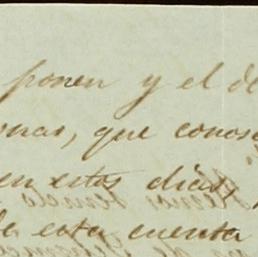 ponen y el de
onas, que conos
en estos dias,
de esta cuenta